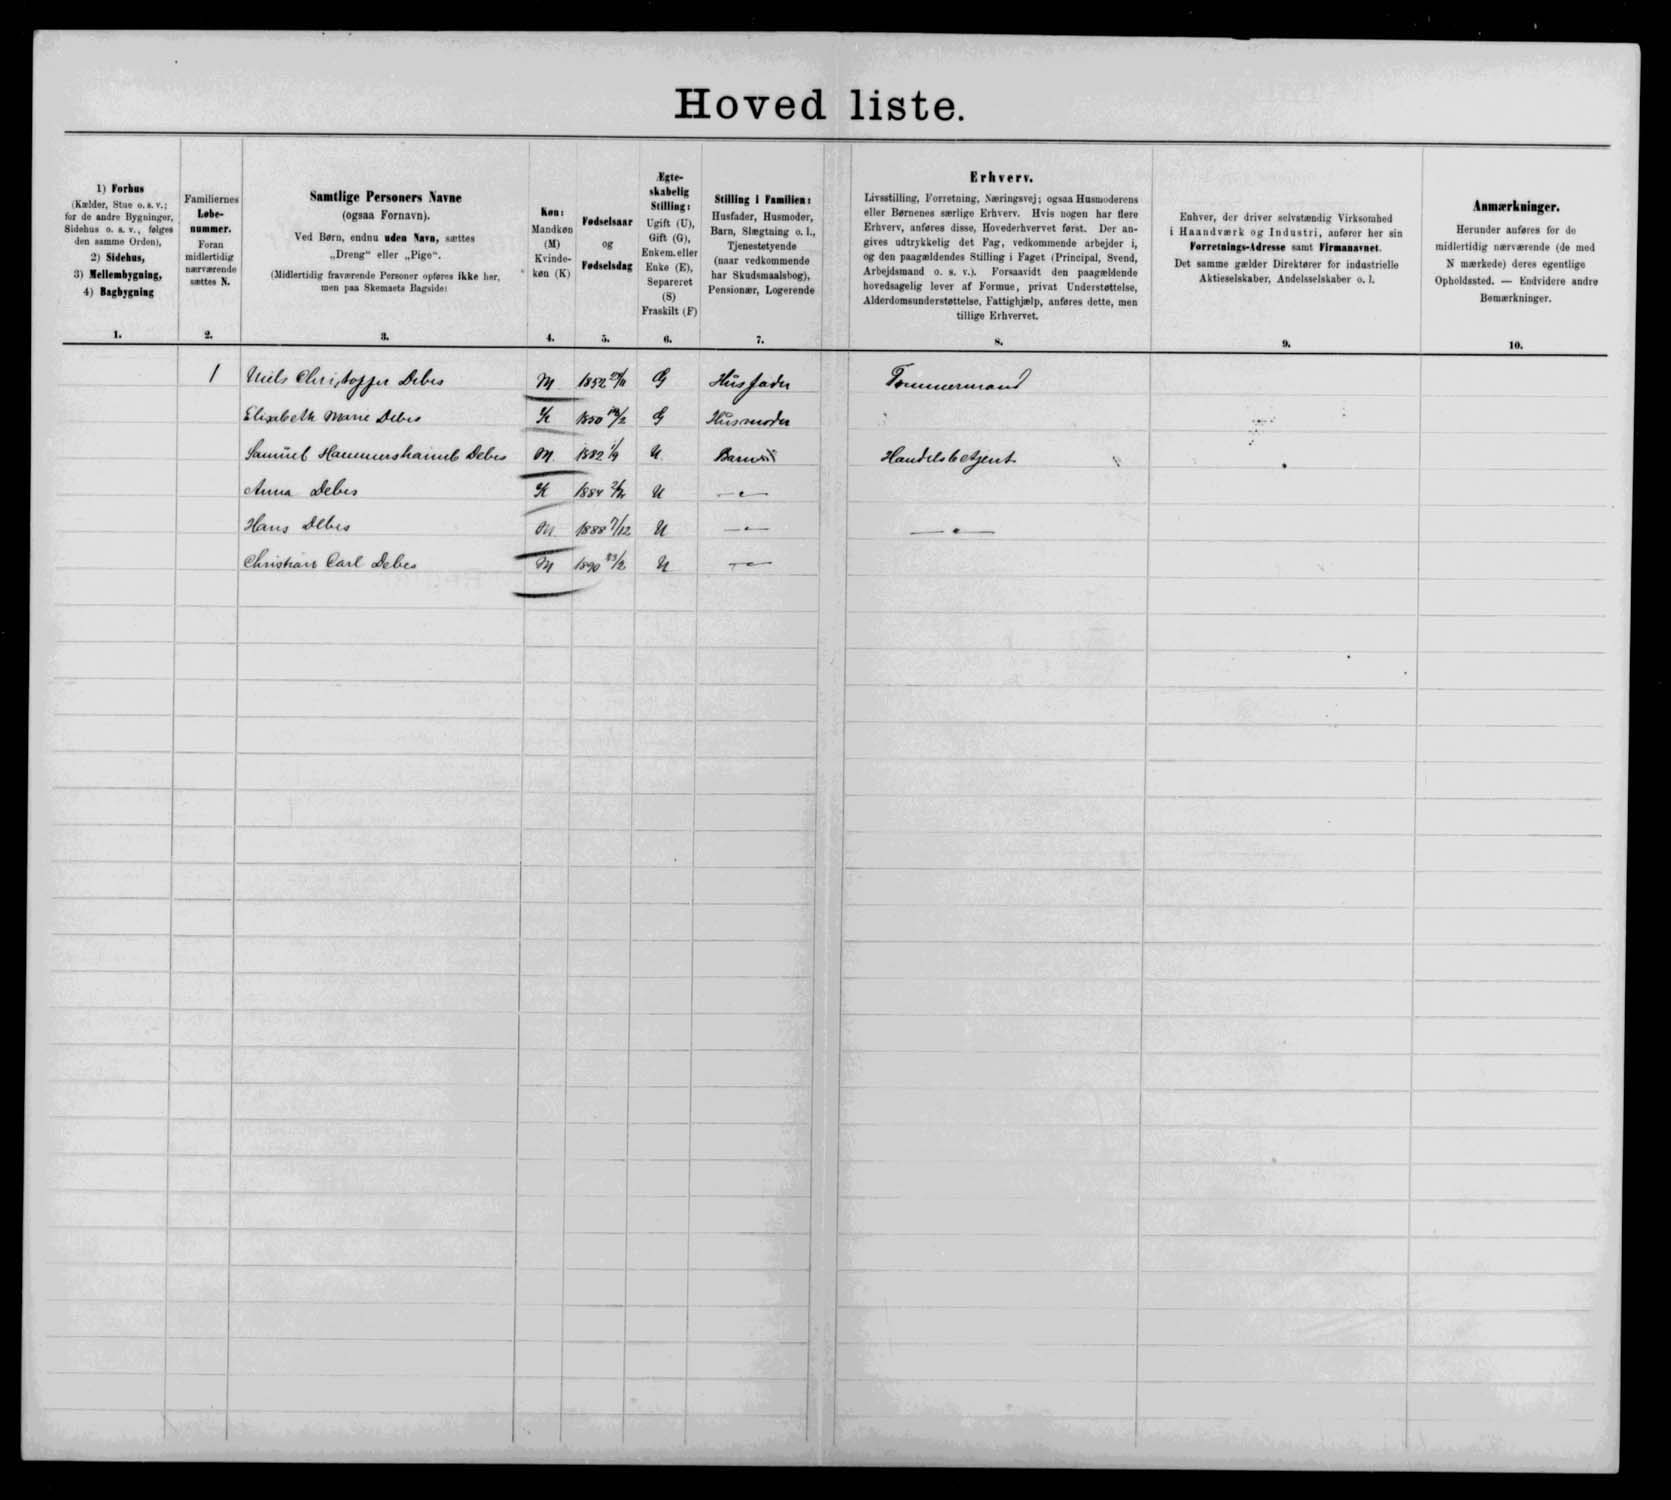 Hoved liste.
1) Forhus
(Kælder, Stue o. s. v.;
for de andre Bygninger,
Sidehus o. s. v., følges
den samme Orden),
2) Sidehus,
3) Mellembygning,
4) Bagbygning
1.
Familiernes
Løbe-
nummer.
Foran
midlertidig
nærværende
sættes N.
2.
Samtlige Personers Navne
(ogsaa Fornavn).
Ved Børn, endnu uden Navn, sættes
„Dreng“ eller „Pige“.
(Midlertidig fraværende Personer opføres ikke her,
men paa Skemaets Bagside)
3.
Køn:
Mandkøn
(M)
Kvinde-
køn (K)
4.
Fødselsaar
og
Fødselsdag
5.
Ægte-
skabelig
Stilling:
Ugift (U),
Gift (G),
Enkem. eller
Enke (E),
Separeret
(S)
Fraskilt (F)
6.
Stilling i Familien:
Husfader, Husmoder,
Barn, Slægtning o. l.,
Tjenestetyende
(naar vedkommende
har Skudsmaalsbog),
Pensionær, Logerende
7.
Erhverv.
Livsstilling, Forretning, Næringsvej; ogsaa Husmoderens
eller Børnenes særlige Erhverv. Hvis nogen har flere
Erhverv, anføres disse, Hovederhvervet først. Der an-
gives udtrykkelig det Fag, vedkommende arbejder i,
og den paagældendes Stilling i Faget (Principal, Svend,
Arbejdsmand o. s. v.). Forsaavidt den paagældende
hovedsagelig lever af Formue, privat Understøttelse,
Alderdomsunderstøttelse, Fattighjælp, anføres dette, men
tillige Erhvervet.
8.
Enhver, der driver selvstændig Virksomhed
i Haandværk og Industri, anfører her sin
Forretnings-Adresse samt Firmanavnet.
Det samme gælder Direktører for industrielle
Aktieselskaber, Andelsselskaber o. l.
9.
Anmærkninger.
Herunder anføres for de
midlertidig nærværende (de med
N mærkede) deres egentlige
Opholdssted. — Endvidere andre
Bemærkninger.
10.
1 Niels Christoffer Debes M 1852 G Husfader Tømmermand
Elisabeth Marie Debes K 1850 G Husmoder
Samuel Hammershaimb Debes M 1882 1/9 U Barn Handels Agent
Anna Debes K 1884 U —"—
Hans Debes M 1888 7/12 U —"— —"—
Christian Carl Debes M 1890 23/2 U —"—